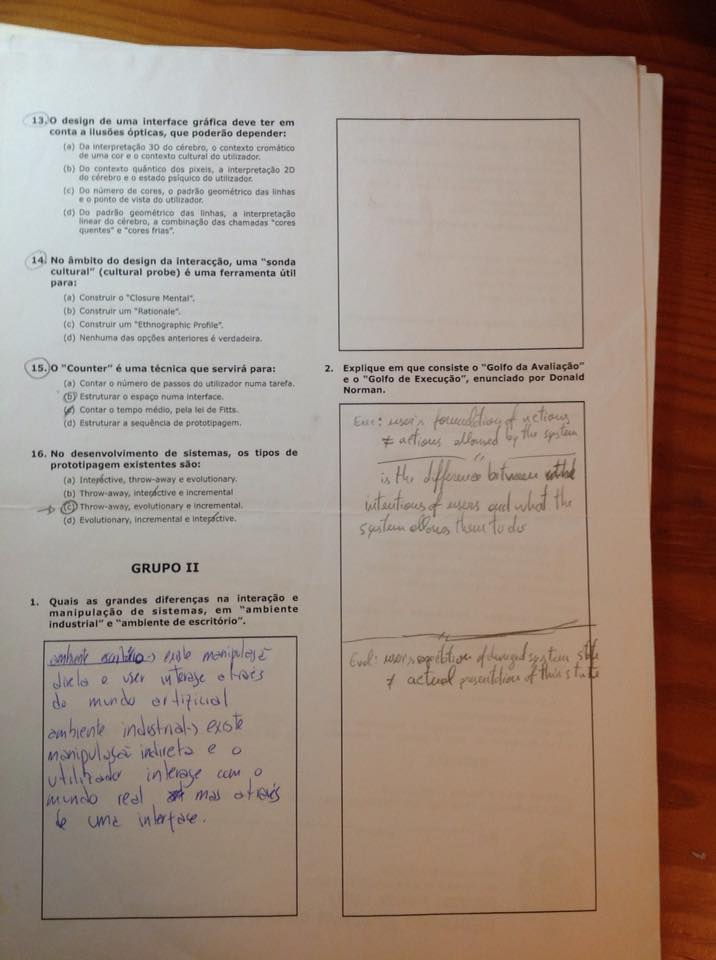 13. O design de uma interface gráfica deve ter em
conta a ilusões ópticas, que poderão depender:
(a) Da interpretação 3D do cérebro, o contexto cromático
de uma cor e o contexto cultural do utilizador.
(b) Do contexto quântico dos pixeis, a interpretação 2D
do cérebro e o estado psíquico do utilizador.
(c) Do número de cores, o padrão geométrico das linhas
e o ponto de vista do utilizador.
(d) Do padrão geométrico das linhas, a interpretação
linear do cérebro, a combinação das chamadas "cores
quentes" e "cores frias".
14. No âmbito do design da interacção, uma "sonda
cultural" (cultural probe) é uma ferramenta útil
para:
(a) Construir o "Closure Mental".
(b) Construir um "Rationale".
(c) Construir um "Ethnographic Profile".
(d) Nenhuma das opções anteriores é verdadeira.
15. O "Counter" é uma técnica que servirá para:
(a) Contar o número de passos do utilizador numa tarefa.
(b) Estruturar o espaço numa interface.
(c) Contar o tempo médio, pela lei de Fitts.
(d) Estruturar a sequência de prototipagem.
16. No desenvolvimento de sistemas, os tipos de
prototipagem existentes são:
(a) Interactive, throw-away e evolutionary.
(b) Throw-away, interactive e incremental
(c) Throw-away, evolutionary e incremental.
(d) Evolutionary, incremental e interactive.
GRUPO II
1. Quais as grandes diferenças na interação e
manipulação de sistemas, em "ambiente
industrial" e "ambiente de escritório".
ambiente escritório -> existe manipulaçã
direta e user interage através
do mundo artificial
ambiente industrial -> existe
manipulaçã indireta e o
utilizador interage com o
mundo real mas através
de uma interface.
2. Explique em que consiste o "Golfo da Avaliação"
e o "Golfo de Execução", enunciado por Donald
Norman.
Exec: user's formulation of actions
≠ actions allowed by the system
is the difference between the
intentions of users and what the
system allows them to do
Eval: user's expectation of changed system state
≠ actual presentation of this state